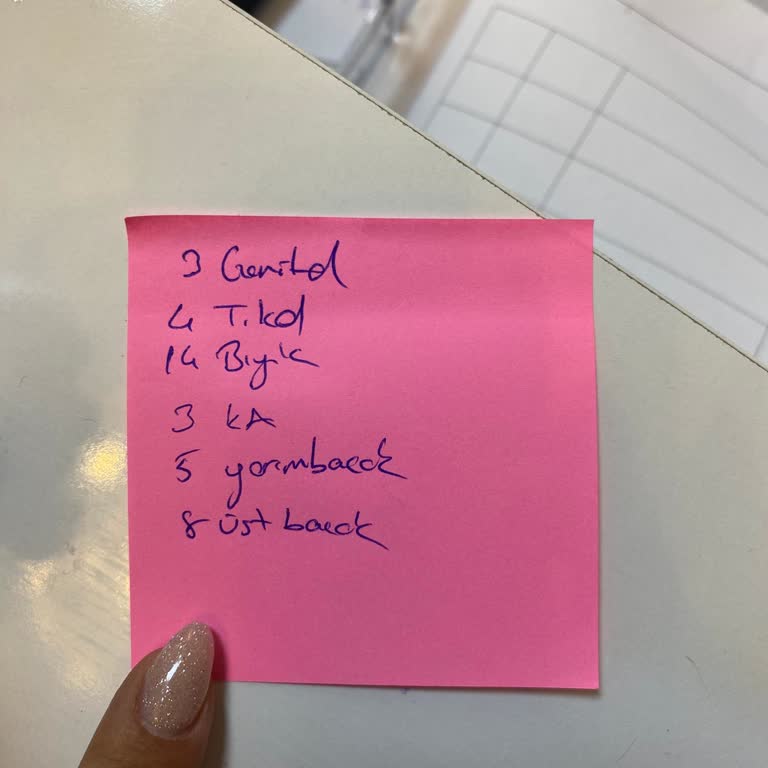 3 Genital
4 T.kol
14 Bıyık
3 kA
5 yarımbacak
8 üst bacak